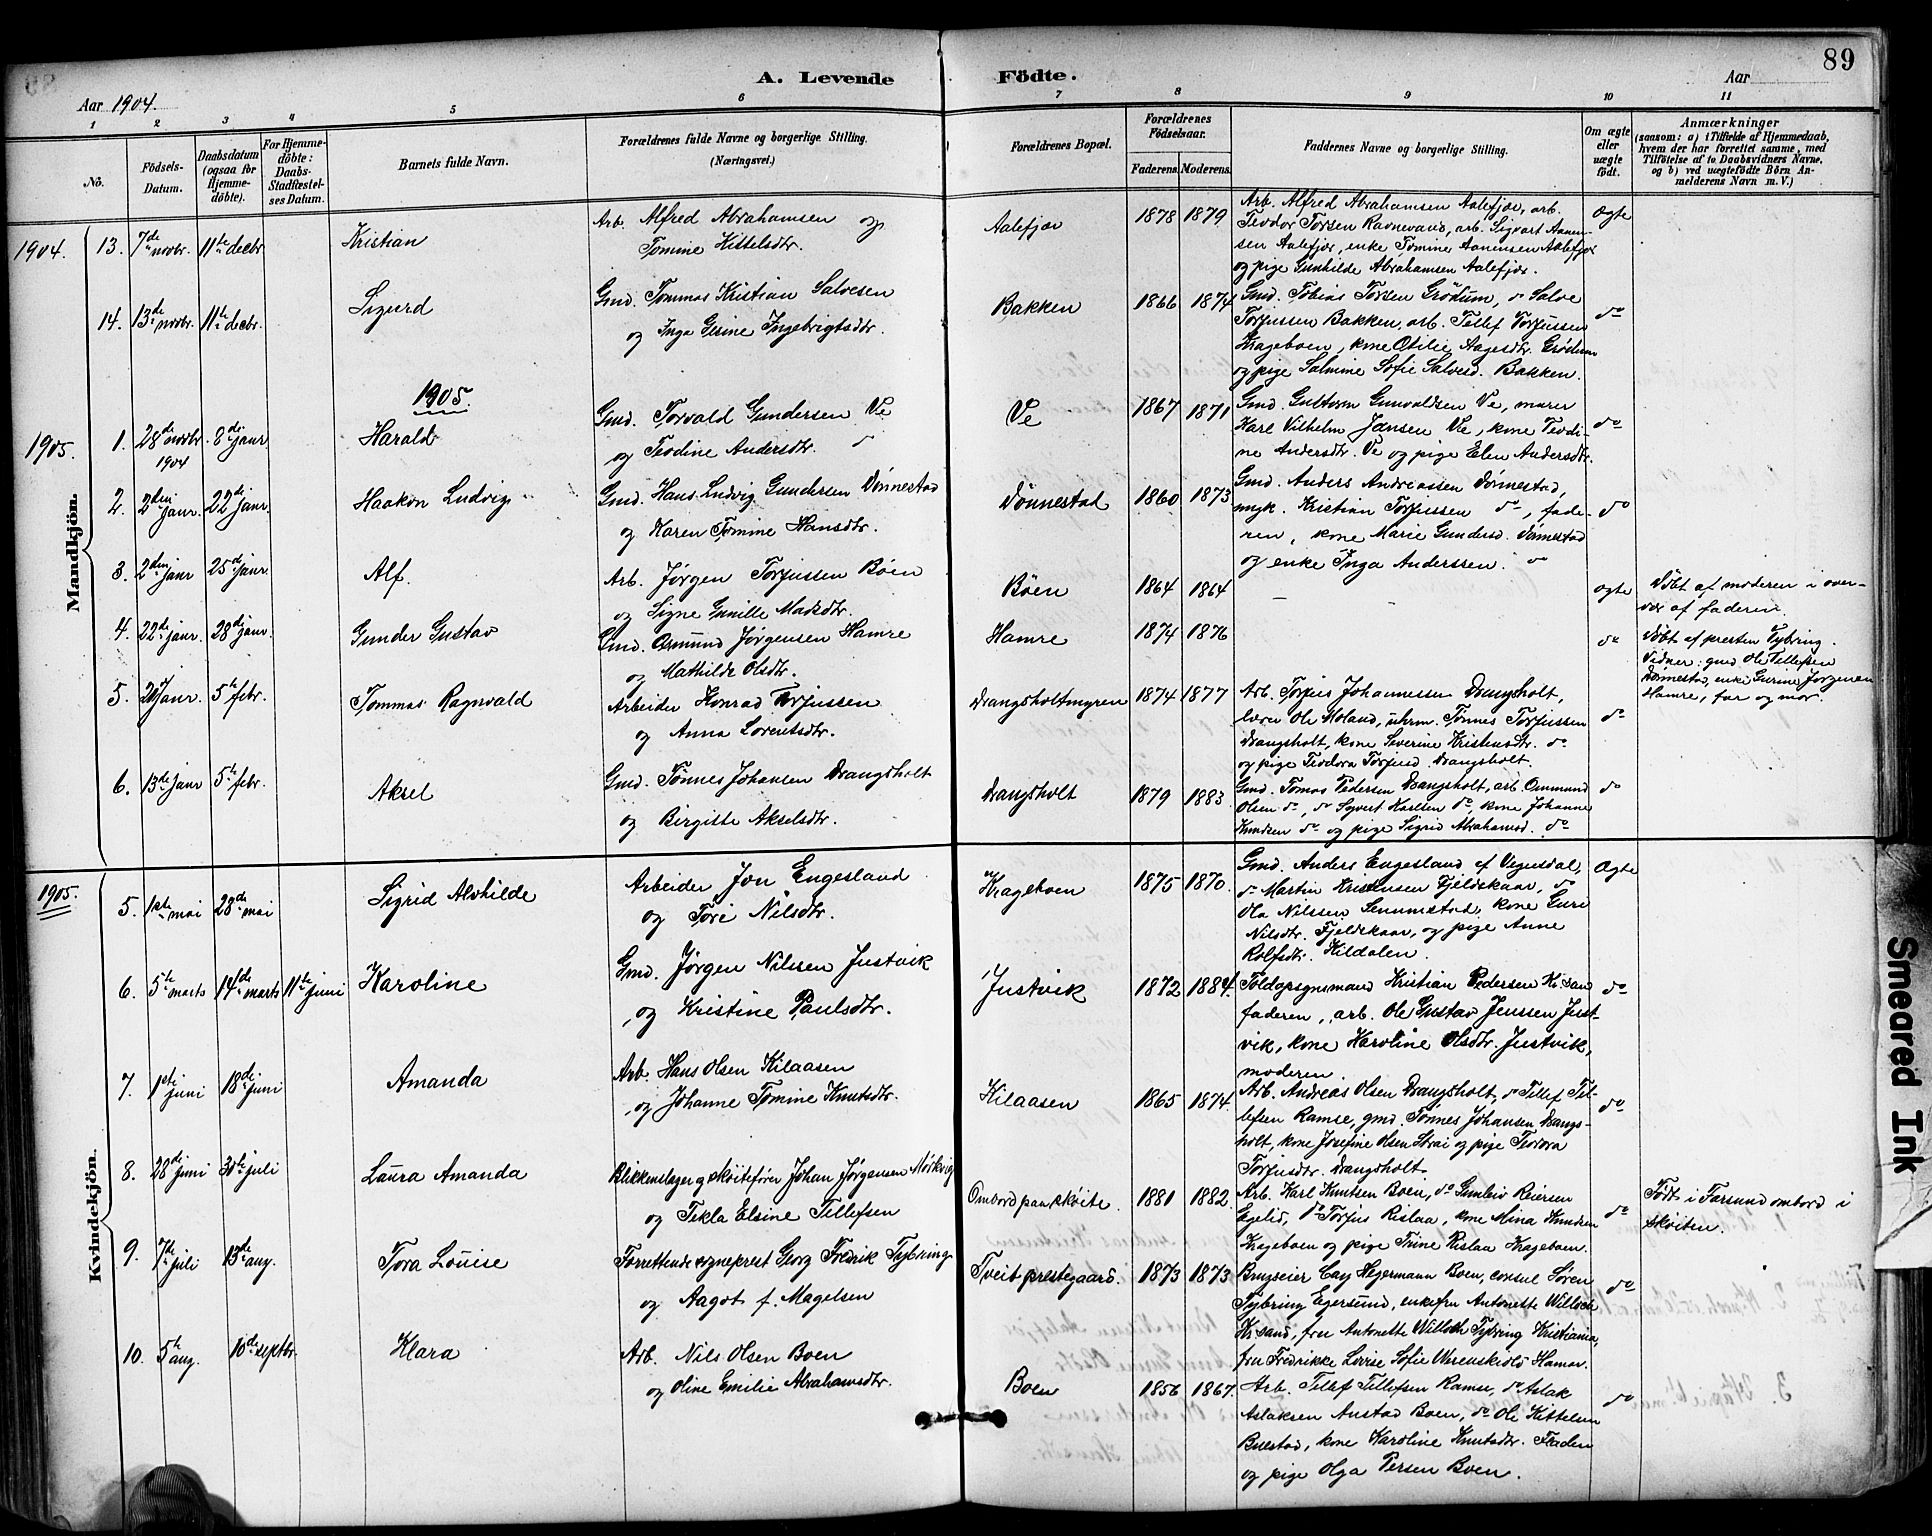 89
A. Levende Födte.
Aar 1904.
Aar
1 2 3 4 5 6 7 8 9 10 11
No.
Födsels-Datum.
Daabsdatum (ogsaa for Hjemmedöbte).
For Hjemmedöbte: Daabs-Stadfæstelses Datum.
Barnets fulde Navn.
Forældrenes fulde Navne og borgerlige Stilling. (Næringsvei.)
Forældrenes Bopæl.
Forældrenes Födselsaar.
Faderens. Moderens.
Faddernes Navne og borgerlige Stilling.
Om ægte eller uægte födt.
Anmærkninger
(saasom: a) i Tilfælde af Hjemmedaab,
hvem der har forrettet samme, med
Tilföielse af to Daabsvidners Navne,
og b) ved uægtefödte Börn Anmelderens Navn m. V.)
Mandkjön.
1904. 13. 7de novbr. 11te decbr. Kristian
Arb. Alfred Abrahamsen og
Tomine Kittelsdtr.
Aalefjær 1878 1879
Arb. Alfred Abrahamsen Aalefjær, arb.
Teodor Torsen Ravnevand, arb. Sigvart Aanensen
Aalefjær, enke Tomine Aanensen Aalefjær
og pige Gunhilde Abrahamsen Aalefjær.
Ægte
14. 13de novbr. 11te decbr. Sigurd
Gmd. Tommas Kristian Salvesen
og Inga Gesine Ingebrigtsdtr.
Bakken 1866 1874
Gmd. Tobias Torsen Grødum, do Salve
Torjussen Bakken, arb. Tellef Torjussen
Krageboen, kone Otilie Aagesdtr. Grødum
og pige Salmine Sofie Salvesd. Bakken.
do
1905.
1905. 1. 28de novbr. 1904 8de jaur Harald
Gmd. Torvald Gundersen Ve
og Teodine Andersdtr. do
Ve 1867 1871
Gmd. Guttorm Gunvaldsen Ve, murer
Karl Vilhelm Jansen Ve, kone Teodine
Andersdtr. Ve og pige Elen Andersdtr.
do
2. 2den jaur. 22de jaur. Haakon Ludvig
Gmd. Hans Ludvig Gundersen Dønnestad
og Karen Tomine Hansdtr.
Dønnestad 1860 1873
Gmd. Anders Andreassen Dønnestad,
myk. Kristian Torjussen do, faderen,
kone Marie Gundersd. Dønnestad
og enke Inga Anderssen. do
do
3. 2den jaur 25de jaur. Alf.
Arb. Jørgen Torjussen Böen
og Signe Gunille Madsdtr.
Böen 1864 1864 –
ægte
Döbt af moderen i overvær
af faderen.
4. 22de jaur. 28de jaur. Gunder Gustav
Gmd. Osmund Jørgensen Hamre
og Mathilde Olsdtr.
Hamre 1874 1876 –
do
Döbt af presten Tybring.
Vidner: gmd Ole Tellefsen
Dønnestad, enke Gurine Jørgensen
Hamre, far og mor.
5. 20 jaur. 5te febr. Tommas Ragnvald
Arbeider Konrad Torjussen
og Anna Lorentsdtr.
Drangsholtmyren 1874 1877
Arb. Torjus Johannessen Drangsholt,
lærer Ole Moland, uhrm. Tønnes Torjussen
Drangsholt, kone Severine Kristensdtr. do
og pige Teodora Torjusd. Drangsholt.
do
6. 13de jaur 5te febr. Aksel
Gmd. Tønnes Johansen Drangsholt
og Birgitte Akselsdtr.
Drangsholt 1879 1883
Gmd. Tomas Pedersen Drangsholt, arb. Ommund
Olsen do, do Syvert Karlsen do, kone Johanne
Knudsen do og pige Sigrid Abrahamsd. do
do
Kvindekjön.
1905. 5. 1ste mai 28de mai Sigrid Alvhilde
Arbeider Jon Engesland
og Tore Nilsdtr.
Krageboen 1875 1870.
Gmd. Anders Engesland af Vegusdal,
do Martin Kristensen Fjeldskaar, do
Ola Nilssen Senumstad, kone Guri
Nilsdtr. Fjeldskaar, og pige Anne
Rolfsdtr. Kildalen.
Ægte
6. 5te marts 14de marts 11te juni Karoline
Gmd. Jørgen Nilssen Justvik
og Kristine Paulsdtr.
Justvik 1872 1884.
Toldopsynsmand Kristian Pedersen Kr.sand
faderen, arb. Ole Gustav Jenssen Justvik,
kone Karoline Olsdtr. Justvik,
moderen.
do
7. 1ste juni 18de juni Amanda
Arb. Hans Olsen Kilaasen
og Johanne Tomine Knutsdtr.
Kilaasen 1865 1874.
Arb. Andreas Olsen Drangsholt, do Tellef Tellefsen
Ramse, gmd Tønnes Johansen Drangsholt,
kone Josefine Olsen Sorai og pige Teodora
Torjusdtr. Drangsholt.
do
8. 28de juni 30te juli Laura Amanda
Blikkenslager og skøitefører Johan Jørgensen Mörkvig
og Tekla Elsine Tellefsen
Ombord paa skøite. 1881 1882.
Arb. Karl Knutsen Boen, do Gunleiv Reiersen
Egelid, do Torjus Rislaa, kone Mina Knudsen
Krageboen og pige Trine Rislaa Krageboen.
do
Födt i Farsund ombord i
skøiten.
9. 7de juli 13de aug. Tora Louise
Forrettende sogneprest Georg Fredrik Tybring
og Aagot f. Magelsen
Tveit prestegaard. 1873 1873
Brugseier Cay Hegermann Boen, consul Sören
Tybring Egersund, enkefru Antonette Willoch
Kr.sand, fru Antonette Willoch Tybring Kristiania,
fru Fredrikke Lovise Sofie Werenskiold Hamar.
do
10. 5te aug. 10de septbr. Klara
Arb. Nils Olsen Boen
og Oline Emilie Abrahamsdtr.
Boen 1856 1867.
Arb. Tellef Tellefsen Ramse, do Aslak
Aslaksen Austad Boen, do Ole Kittelsen
Buestad, kone Karoline Knutsdtr. Fladen
og pige Olga Persen Boen.
do
Smeared Ink